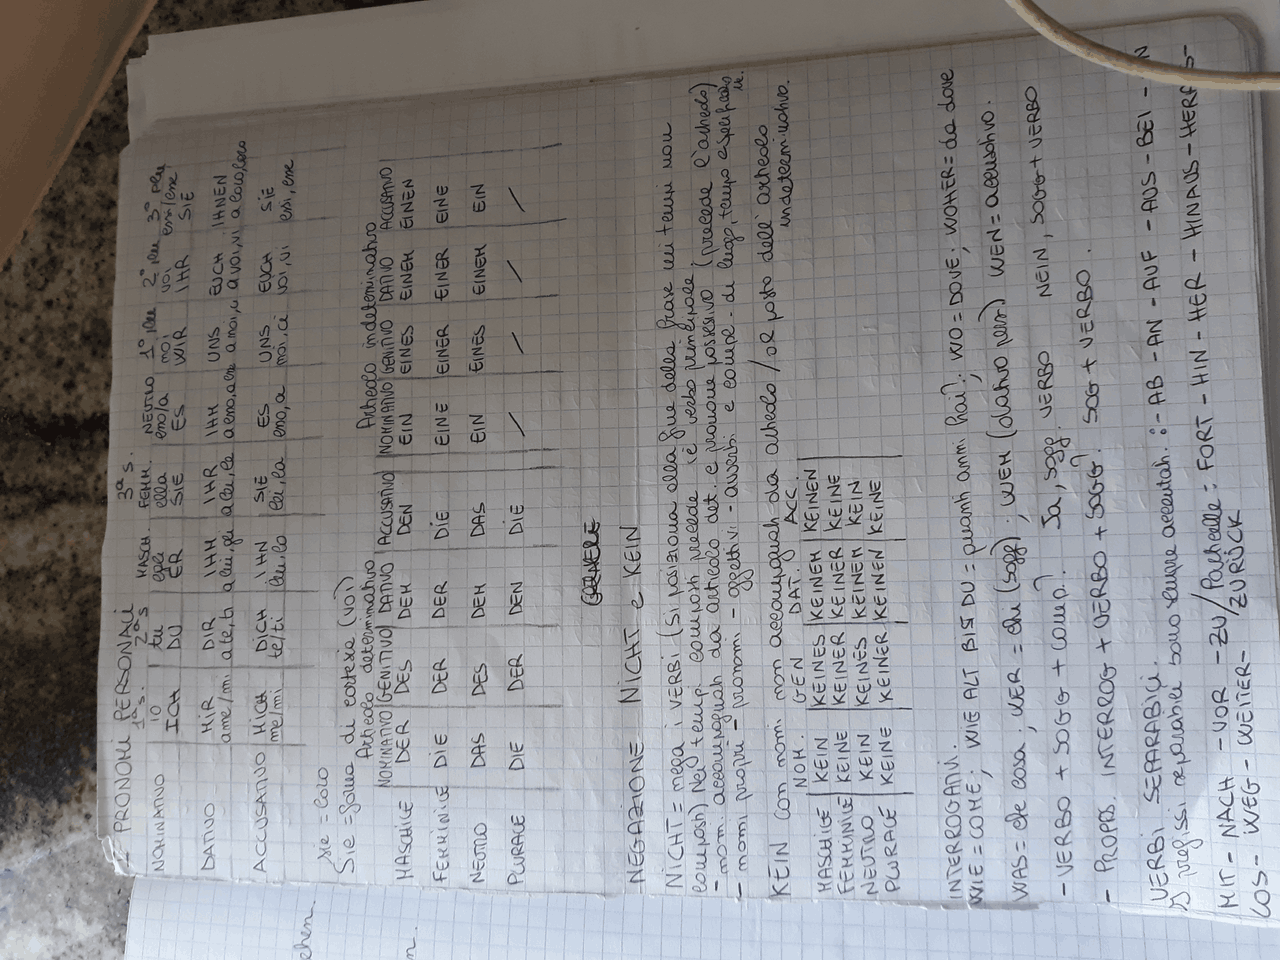 PRONOMI PERSONALI
3ª s.
1ª s. 2ª s MASCH. FEMM. NEUTRO 1ª plu 2ª plu 3ª plu
NOMINATIVO IO tu egli ella esso/a noi, voi, essi/esse
ICH DU ER SIE ES WIR IHR SIE
DATIVO MIR DIR IHM IHR IHM UNS EUCH IHNEN
a me/mi a te, ti a lui, gli a lei, le a esso, a essa a noi, a voi, vi a loro, loro
ACCUSATIVO MICH DICH IHN SIE ES UNS EUCH SIE
me/mi te/ti lui, lo lei, la esso, a noi, ci voi, vi essi, esse
sie = loro
Sie = forma di cortesia (voi)
Articolo determinativo Articolo indeterminativo
NOMINATIVO GENITIVO DATIVO ACCUSATIVO NOMINATIVO GENITIVO DATIVO ACCUSATIVO
MASCHILE DER DES DEM DEN EIN EINES EINEM EINEN
FEMMINILE DIE DER DER DIE EINE EINER EINER EINE
NEUTRO DAS DES DEM DAS EIN EINES EINEM EIN
PLURALE DIE DER DEN DIE / / / /
NEGAZIONE NICHT e KEIN
NICHT = nega i VERBI (si posiziona alla fine della frase nei tempi non
composti) Nei tempi composti precede il verbo principale
- nomi accompagnati da articolo det. e pronome possessivo (precede l'articolo)
- nomi propri - pronomi - aggettivi - avverbi e compl. di luogo, tempo
KEIN con nomi non accompagnati da articolo / al posto dell'articolo
indeterminativo.
NOM. GEN DAT. ACC.
MASCHILE KEIN KEINES KEINEM KEINEN
FEMMINILE KEINE KEINER KEINER KEINE
NEUTRO KEIN KEINES KEINEM KEIN
PLURALE KEINE KEINER KEINEN KEINE
INTERROGATIVI.
WIE = COME; WIE ALT BIST DU = quanti anni hai?; WO = DOVE; WOHER = da dove
WAS = che cosa; WER = chi (sogg); WEM (dativo per) WEN = accusativo.
- VERBO + SOGG + comp? Ja, sogg. VERBO NEIN, SOGG + VERBO
- PROPOS. INTERROG + VERBO + SOGG? SOG + VERBO.
VERBI SEPARABILI.
I prefissi separabili sono sempre accentati. :- AB - AN - AUF - AUS - BEI -
MIT - NACH - VOR - ZU / Particelle: FORT - HIN - HER - HINAUS -
LOS - WEG - WEITER - ZURÜCK